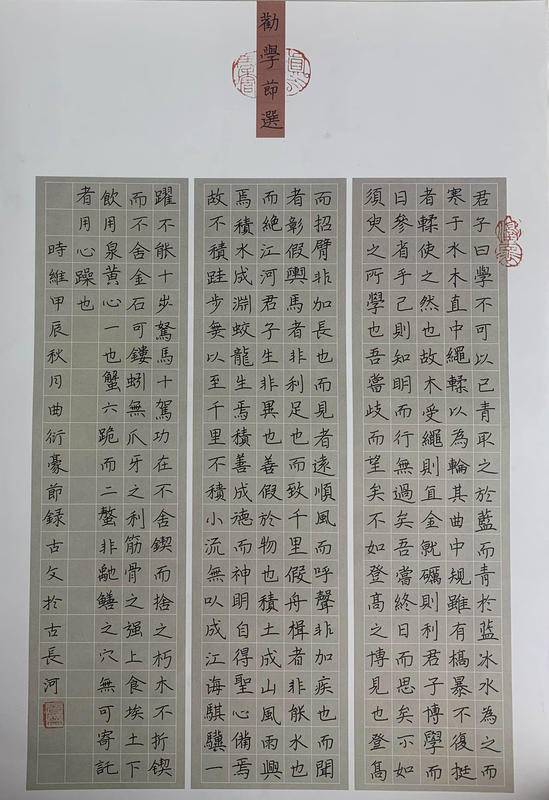 勸學節選
君子曰學不可以已青取之於藍而青於藍冰水為之而
寒于水木直中繩輮以為輪其曲中規雖有槁暴不復挺
者輮使之然也故木受繩則直金就礪則利君子博學而
日參省乎己則知明而行無過矣吾嘗終日而思矣不如
須臾之所學也吾嘗歧而望矣不如登高之博見也登高
而招臂非加長也而見者遠順風而呼聲非加疾也而聞
者彰假輿馬者非利足也而致千里假舟楫者非能水也
而絕江河君子生非異也善假於物也積土成山風雨興
焉積水成淵蛟龍生焉積善成德而神明自得聖心備焉
故不積跬步無以至千里不積小流無以成江海騏驥一
躍不能十步駑馬十駕功在不舍鍥而捨之朽木不折鍥
而不舍金石可鏤蚓無爪牙之利筋骨之强上食埃土下
飲用泉黃心一也蟹六跪而二螯非虵鱔之穴無可寄託
者用心躁也
時維甲辰秋月曲衍豪節録古文於古長河